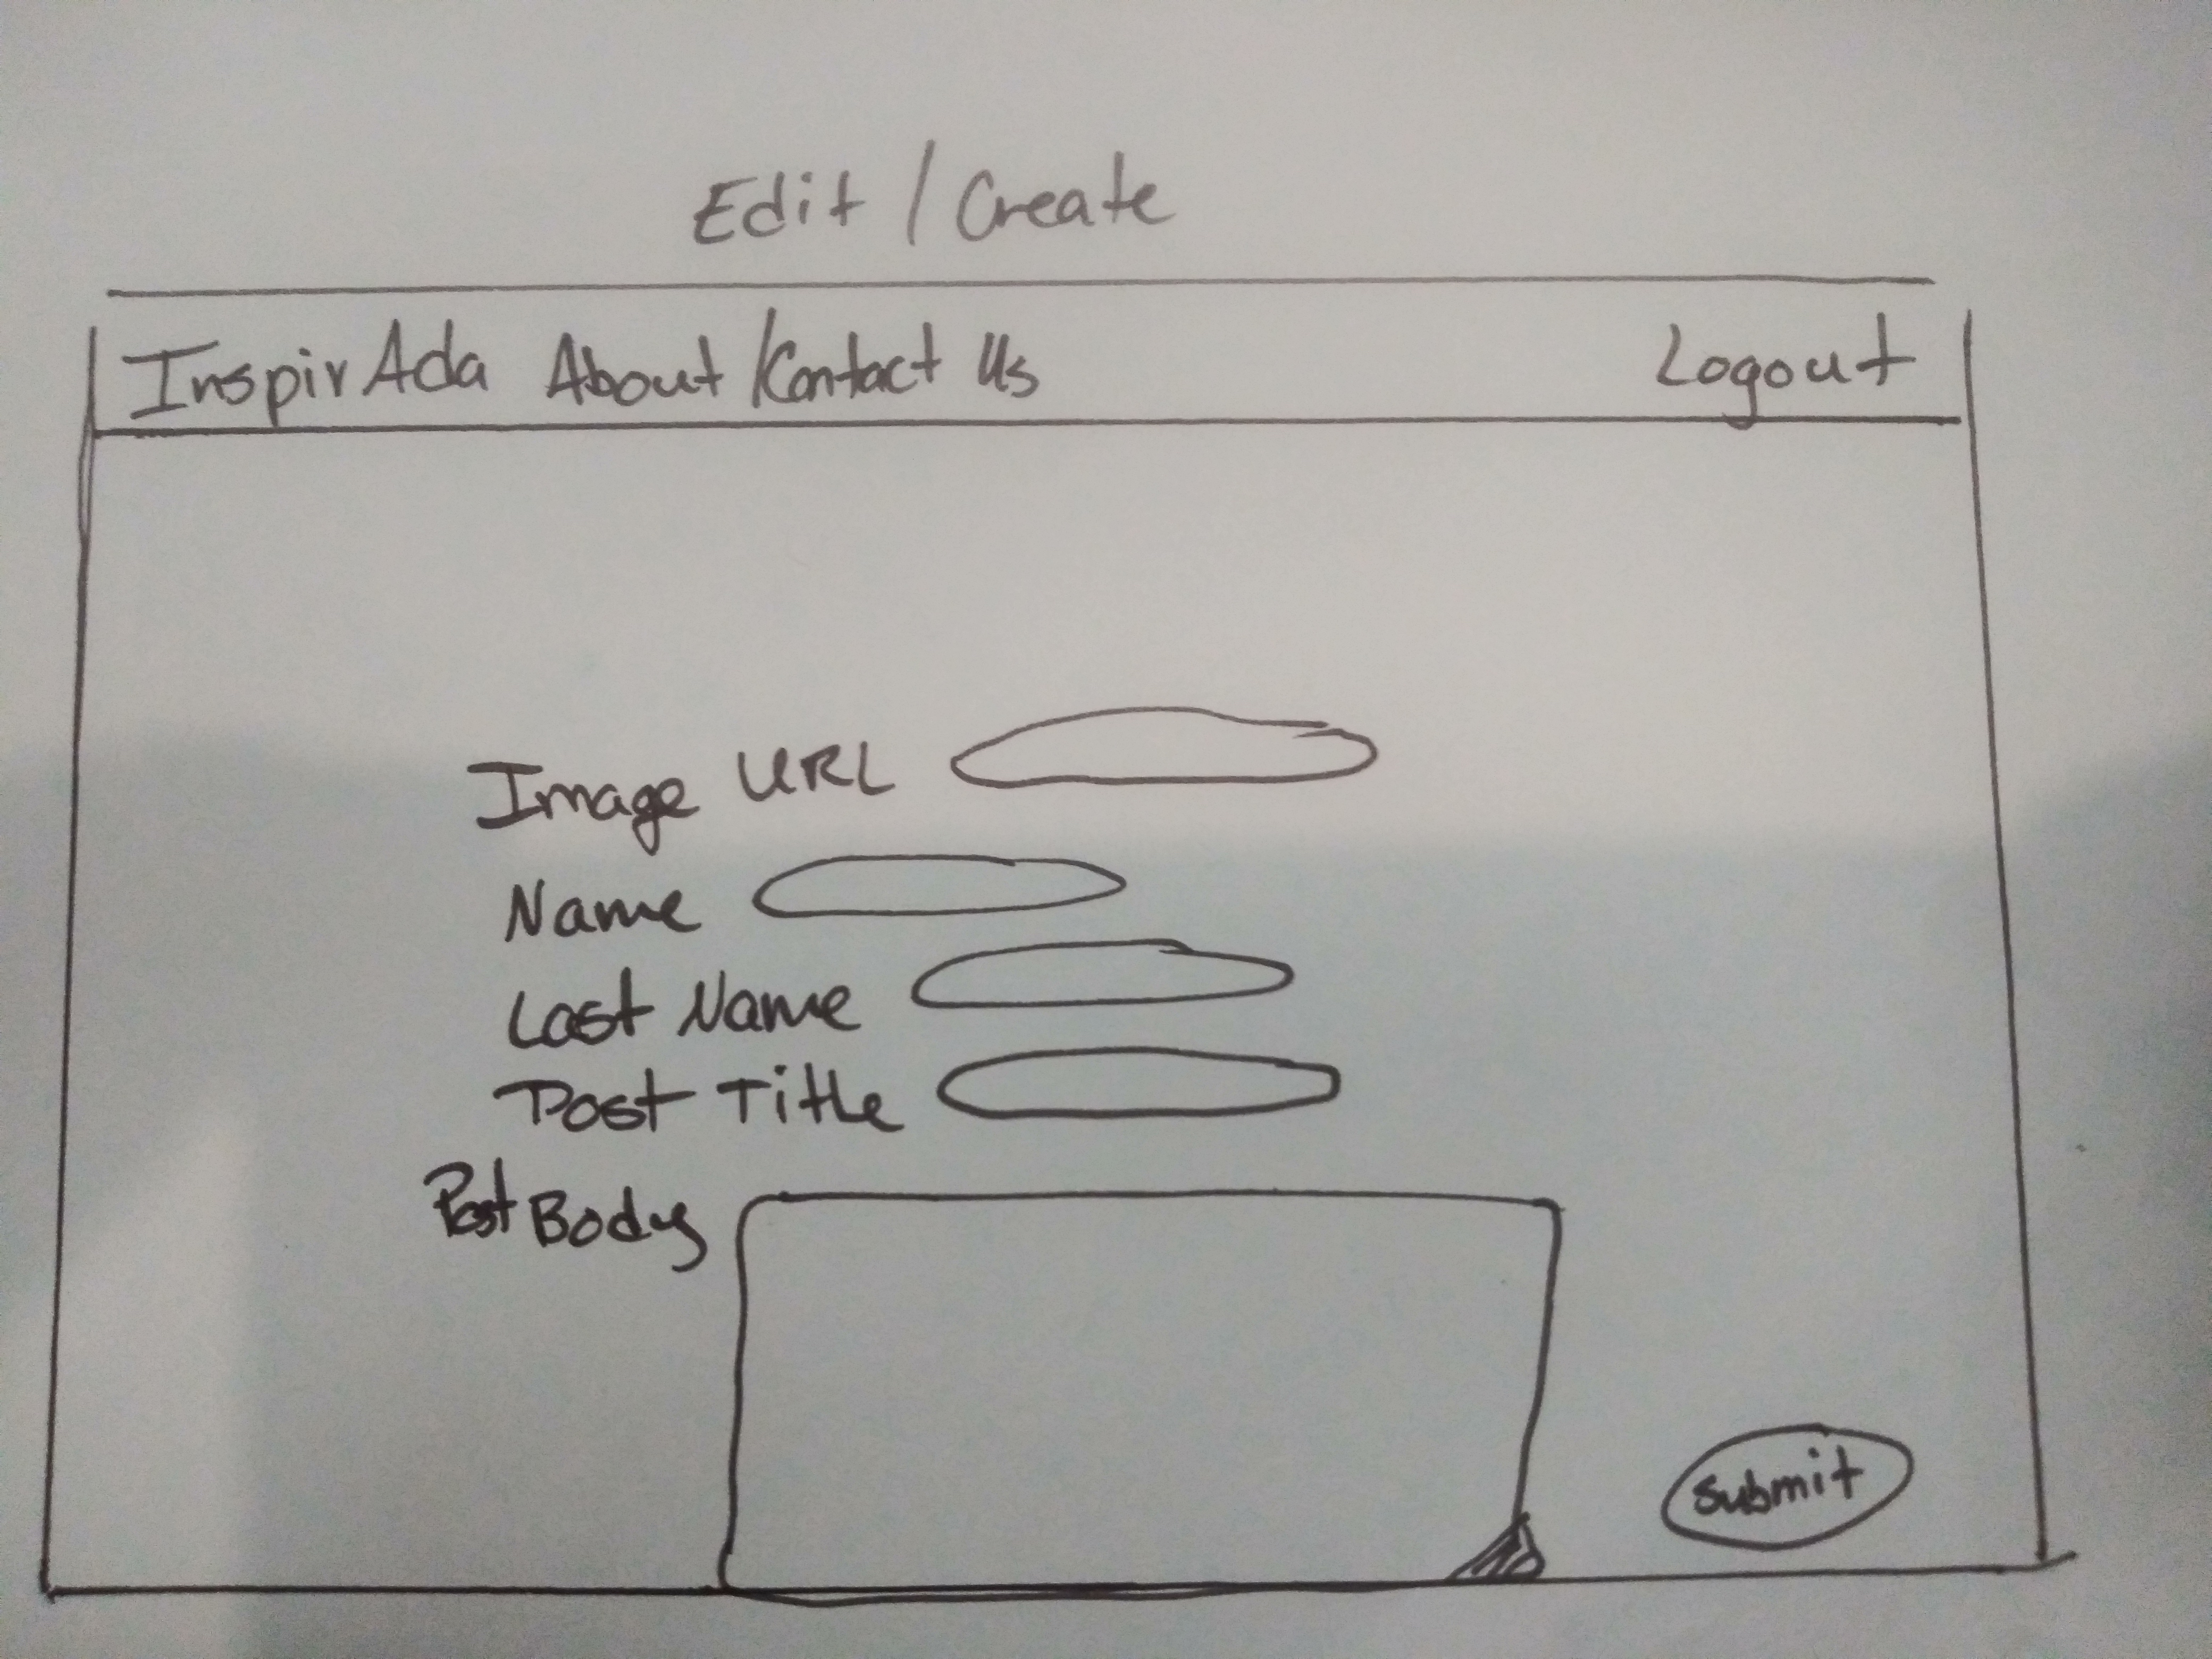 Edit / Create
InspirAda About /Contact Us Logout
Image URL
Name
Last Name
Post Title
Post Body
Submit